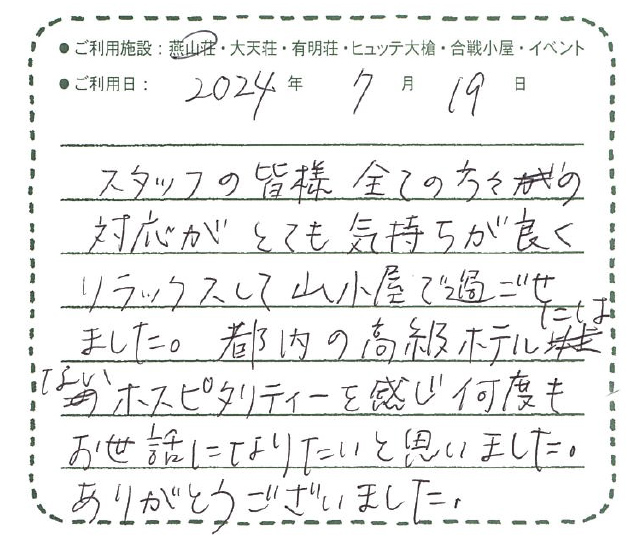 ●ご利用施設：燕山荘・大天荘・有明荘・ヒュッテ大槍・合戦小屋・イベント
●ご利用日： 2024 年 7 月 19 日
スタッフの皆様 全ての方々の
対応が とても 気持ちが良く
リラックスして 山小屋で過ごせ
ました。 都内の高級ホテルには
ないホスピタリティーを感じ 何度も
お世話になりたいと思いました。
ありがとうございました。